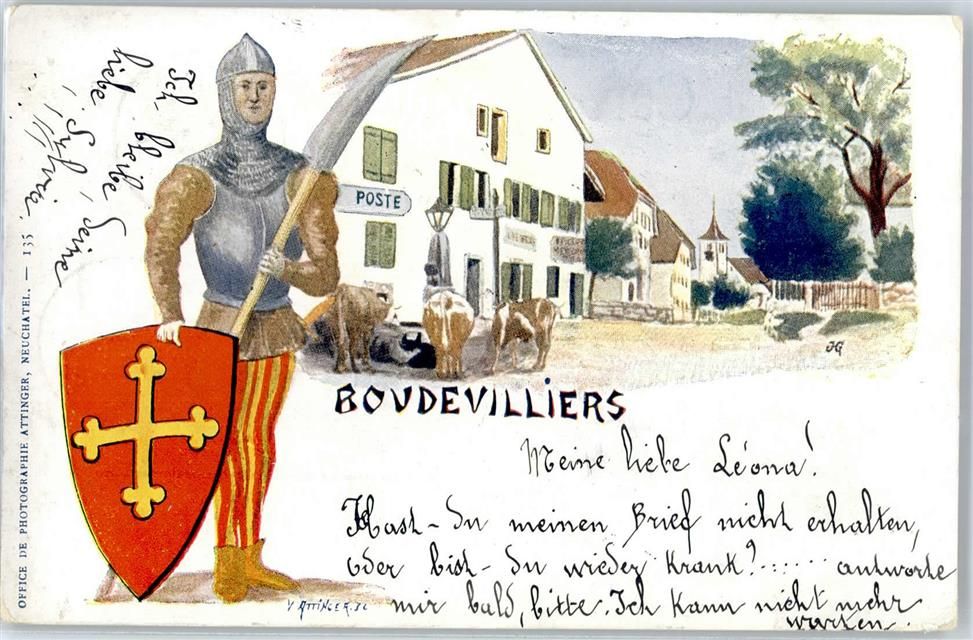 POSTE
BOUDEVILLIERS
JG
Meine liebe Léona!
Hast-du meinen Brief nicht erhalten,
oder bist-du wieder Krank?...... antworte
mir bald, bitte. Ich Kann nicht mehr
warten.
Ich bleibe, Deine
liebe Sylvie.
V. ATTINGER. SC
OFFICE DE PHOTOGRAPHIE ATTINGER, NEUCHATEL. — 135